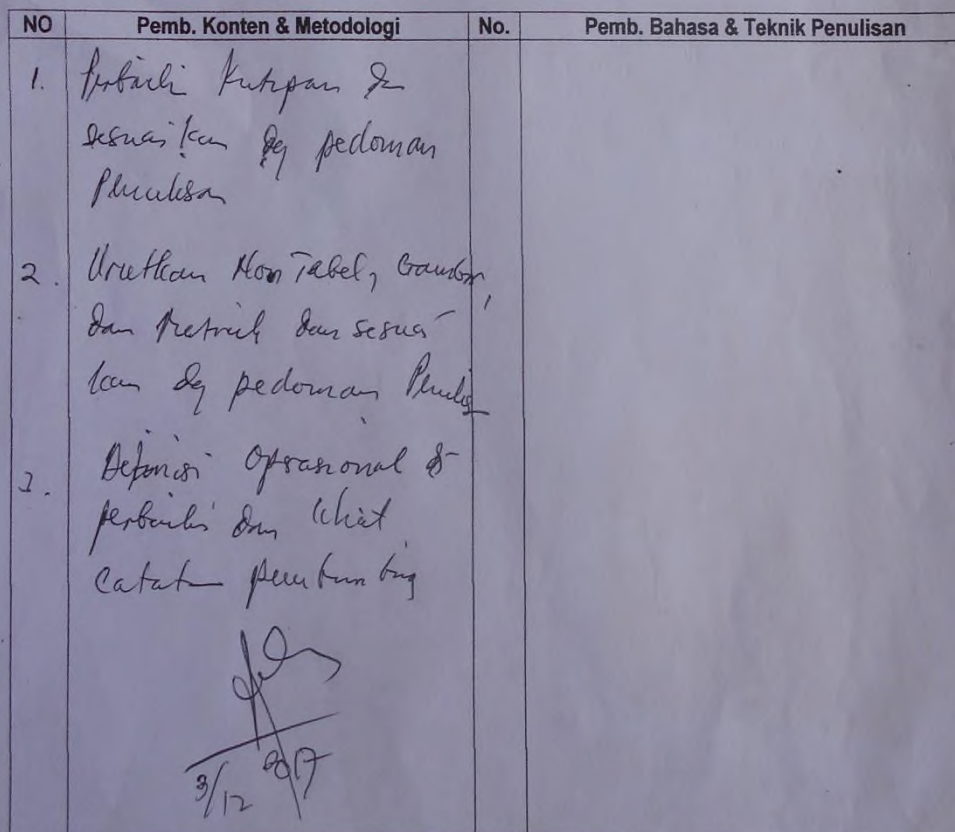 NO Pemb. Konten & Metodologi No. Pemb. Bahasa & Teknik Penulisan
1. Perbaiki Kutipan &
sesuaikan dg pedoman
Penulisan
2. Urutkan Tabel, Gambar,
dan Matrik dan sesuai
kan dg pedoman Penulis
3. Definisi Oprasional di
perbaiki dan lihat
catatan pembimbing
3/12 2017